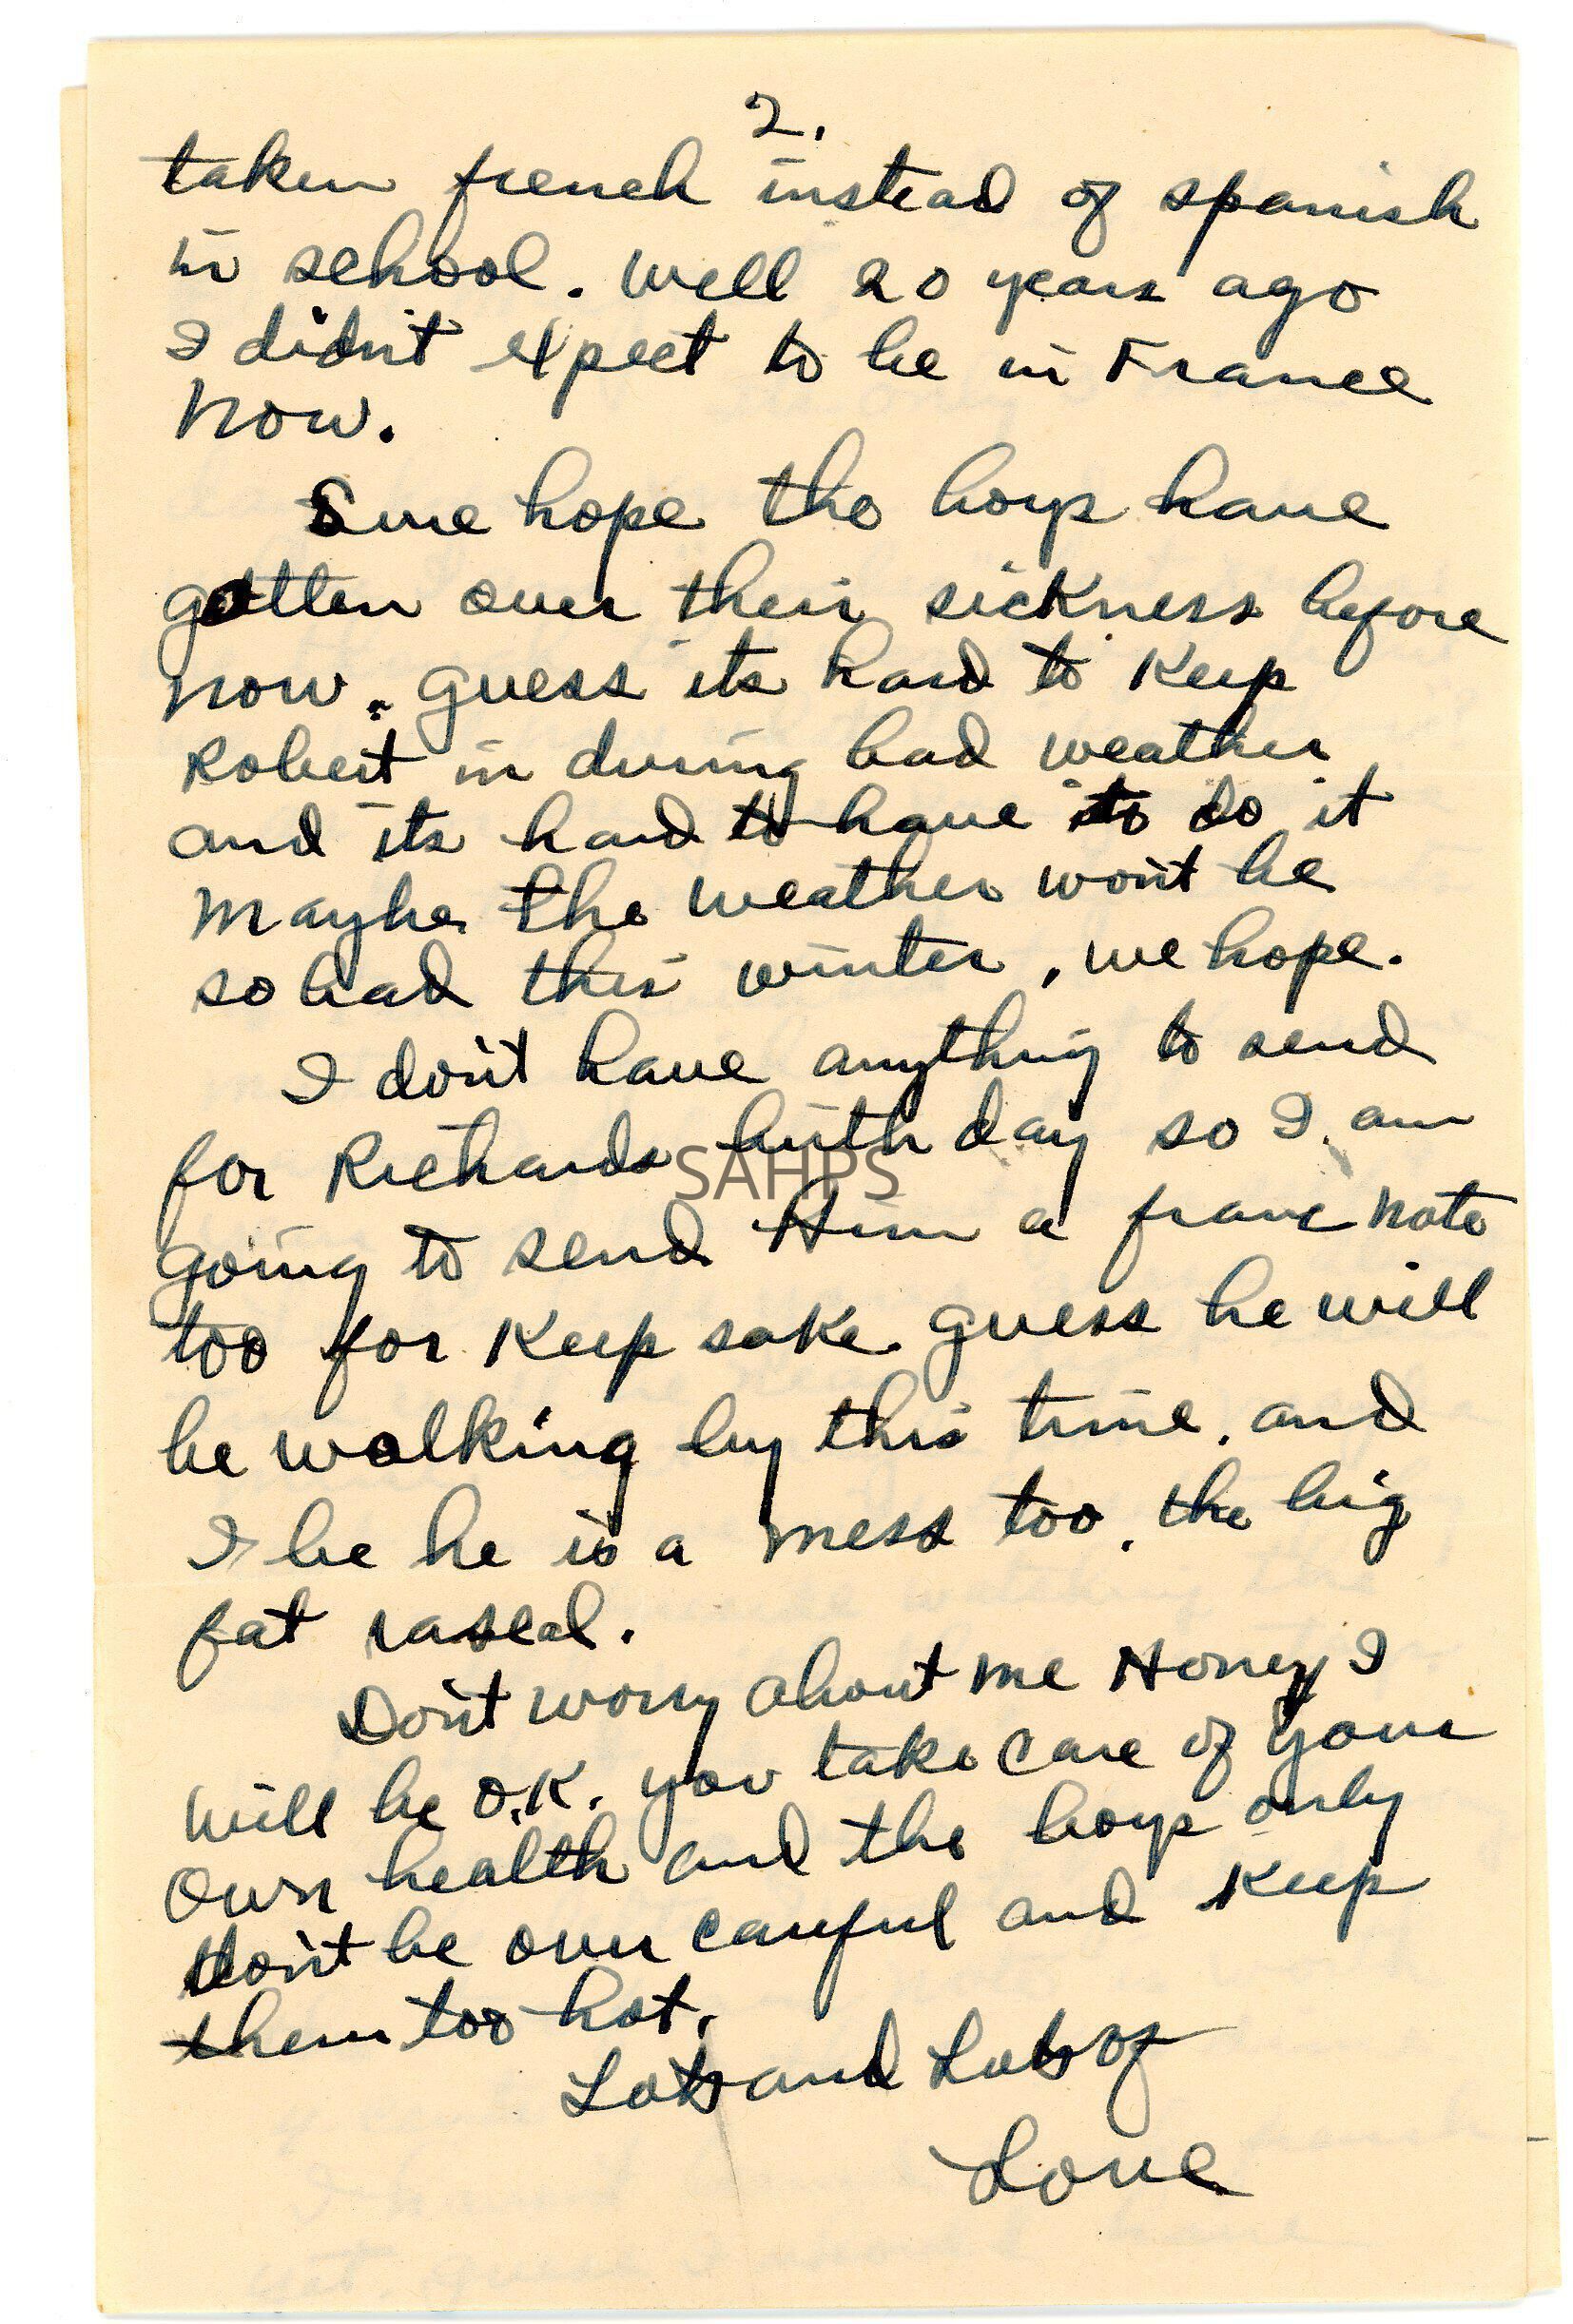 2.
taken french instead of spanish
in school. Well 20 years ago
I didn't expect to be in France
now.
Sure hope the boys have
gotten over their sickness before
now. guess its hard to keep
Robert in during bad weather
and its hard to have to do it
Maybe the weather won't be
so bad this winter, we hope.
I don't have anything to send
for Richards birthday so I am
SAHPS
going to send Him a franc note
too for Keep sake. guess he will
be walking by this time. and
I be he is a mess too. the big
fat rascal.
Don't worry about me Honey I
will be O.K. you take care of your
own health and the boys only
don't be over careful and keep
them too hot.
Lots and Lots of
Love